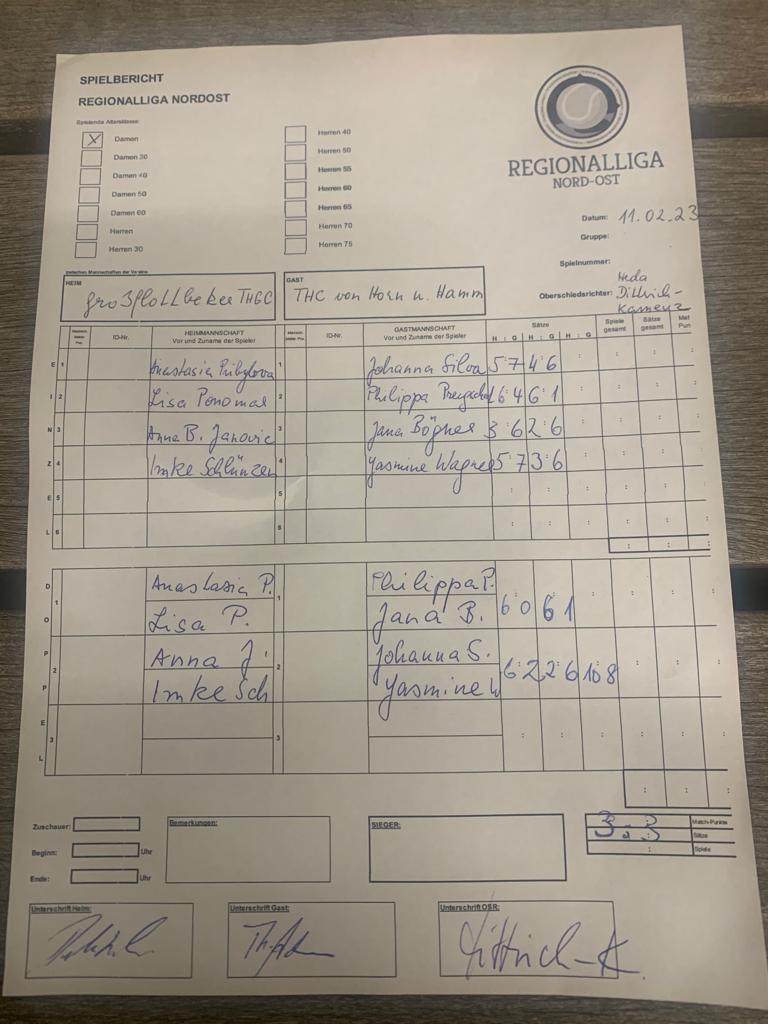 SPIELBERICHT
REGIONALLIGA NORDOST
Spielende Altersklasse:
X Damen
Damen 30
Damen 40
Damen 50
Damen 60
Herren
Herren 30
Herren 40
Herren 50
Herren 55
Herren 60
Herren 65
Herren 70
Herren 75
REGIONALLIGA
NORD-OST
Datum: 11.02.23
Gruppe:
Spielnummer:
Oberschiedsrichter: Heda Dittrich-Kamenz
zwischen Mannschaften der Vereine
HEIM
Großflottbeker THGC
GAST
THC von Horn u. Hamm
ID-Nr. HEIMMANNSCHAFT ID-Nr. GASTMANNSCHAFT Sätze Spiele Sätze Mat
Vor und Zuname der Spieler Vor und Zuname der Spieler H : G H : G H : G gesamt gesamt Pun
E 1 Anastasia Pribylova 1 Johanna Silva 5 7 4 6
I 2 Lisa Ponomar 2 Philippa 6 4 6 1
N 3 Anna B. Janovic 3 Jana Bögner 3 6 2 6
Z 4 Imke Schlünzen 4 Yasmine Wagner 5 7 3 6
E 5 5
L 6 6
D Anastasia P. Philippa P.
1 1
O Lisa P. Jana B. 6 0 6 1
P Anna J. Johanna S.
2 2
P Imke Sch Yasmine W 6 2 2 6 10 8
E
3 3
L
Zuschauer:
Beginn: Uhr
Ende: Uhr
Bemerkungen:
SIEGER:
3 : 3 Match-Punkte
Sätze
Spiele
Unterschrift Heim:
Unterschrift Gast:
Unterschrift OSR:
Dittrich-K